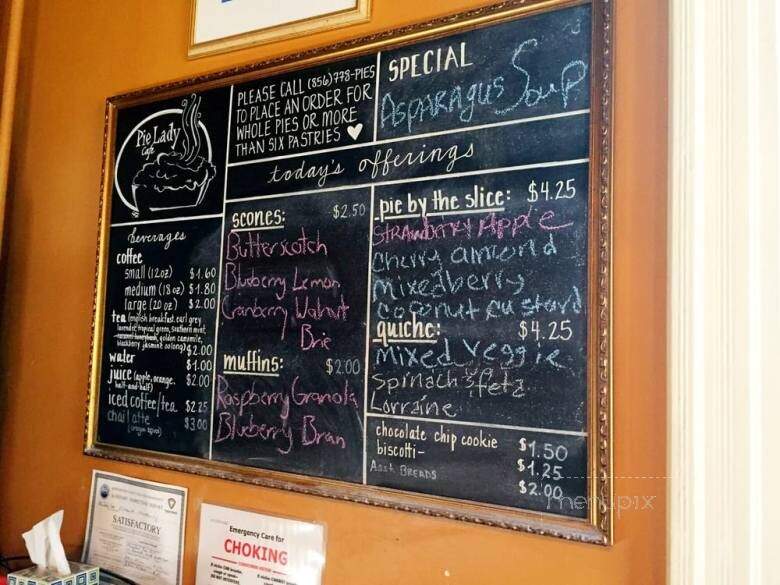 Pie Lady
Cafe
PLEASE CALL (856) 778-PIES
TO PLACE AN ORDER FOR
WHOLE PIES OR MORE
THAN SIX PASTRIES ♥
SPECIAL
ASPARAGUS SOUP
today's offerings
beverages
coffee
small (12oz) $1.60
medium (18oz) $1.80
large (20 oz) $2.00
tea (english breakfast, earl grey
lavender, tropical green, southern mint,
golden camomile,
blackberry jasmine oolong) $2.00
water $1.00
juice (apple, orange, $2.00
half-and-half)
iced coffee/tea $2.25
chai latte $3.00
scones: $2.50
Butterscotch
Blueberry Lemon
Cranberry Walnut
Brie
muffins: $2.00
Raspberry Granola
Blueberry Bran
pie by the slice: $4.25
STRAWBERRY APPLE
cherry almond
mixedberry
coconut custard
quiche: $4.25
Mixed Veggie
Spinach & feta
Lorraine
chocolate chip cookie $1.50
biscotti- $1.25
Asst BREADS $2.00
SATISFACTORY
Emergency Care for
CHOKING
menupix